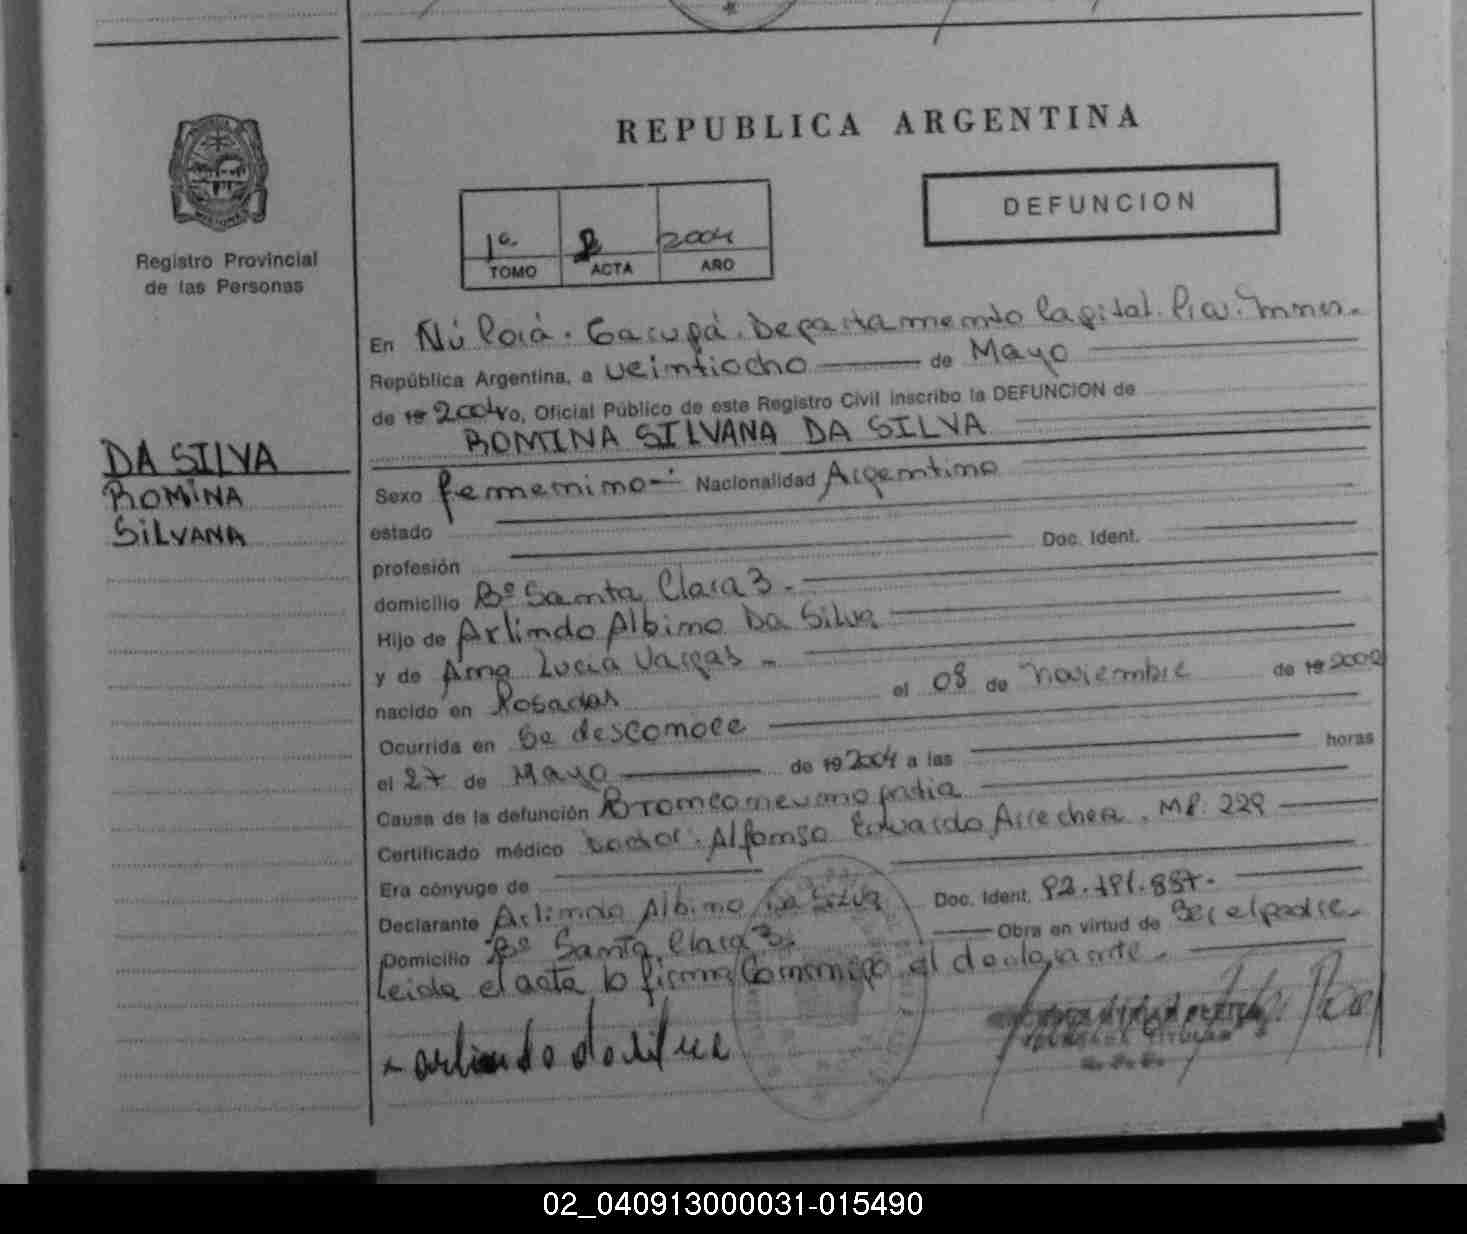 REPUBLICA ARGENTINA
DEFUNCION
1º 2004
TOMO ACTA AÑO
Registro Provincial
de las Personas
En Ñú Porá. Garupá. Departamento Capital. Pcia. Mnes.
República Argentina, a veintiocho de Mayo
de 19 2004 yo, Oficial Público de este Registro Civil inscribo la DEFUNCION de
ROMINA SILVANA DA SILVA
DA SILVA
ROMINA
SILVANA
Sexo femenino Nacionalidad Argentino
estado
profesión Doc. Ident.
domicilio Bº Santa Clara 3.
Hijo de Arlindo Albino Da Silva
y de Ana Lucia Vargas
nacido en Posadas el 08 de noviembre de 19 2002
Ocurrida en Se desconoce
el 27 de Mayo de 19 2004 a las horas
Causa de la defunción Bronconeumopatia
Certificado médico Doctor. Alfonso Eduardo Arrechea. MP. 229
Era cónyuge de
Declarante Arlindo Albino Da Silva Doc. Ident. 92.191.857.
Domicilio Bº Santa Clara 3. Obra en virtud de Ser el padre.
Leida el acta lo firma conmigo el declarante.
arlindo da silva
02_040913000031-015490